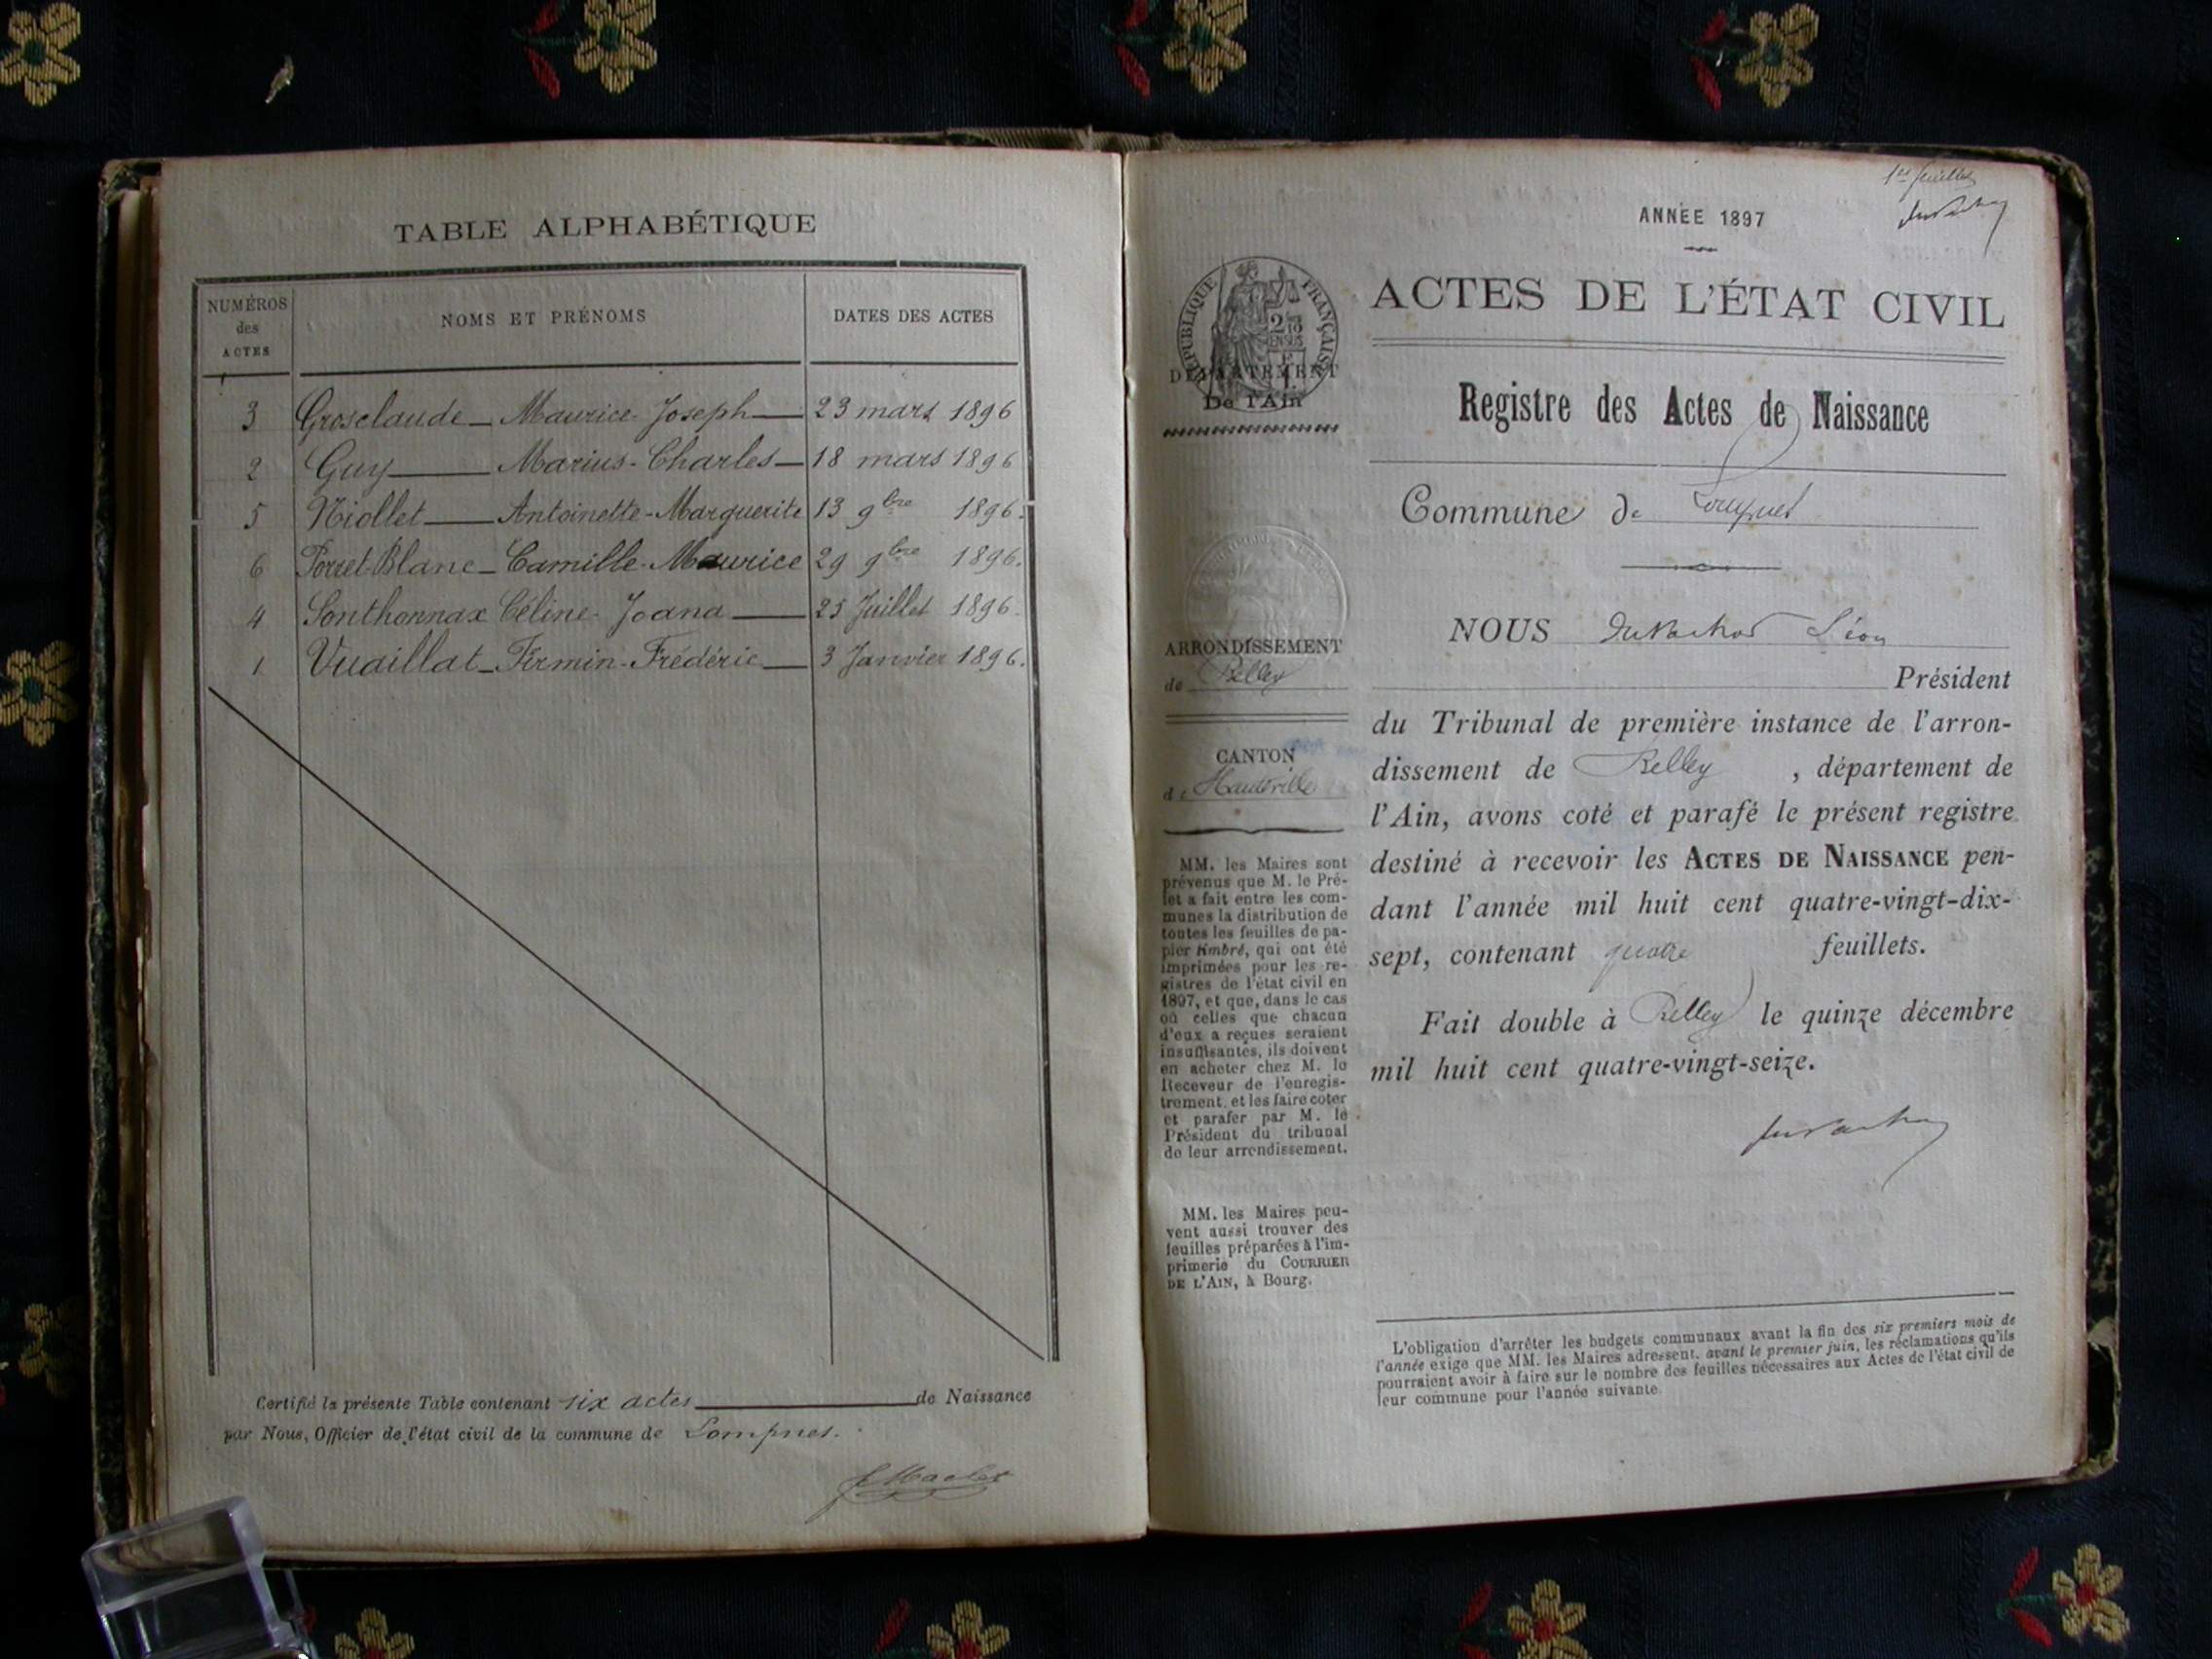 TABLE ALPHABÉTIQUE
NUMÉROS des ACTES
NOMS ET PRÉNOMS
DATES DES ACTES
3 Grosclaude — Maurice-Joseph — 23 mars 1896
2 Guy — Marius-Charles — 18 mars 1896
5 Niollet — Antoinette-Marguerite 13 9bre 1896.
6 Porret-Blanc — Camille-Maurice 29 9bre 1896.
4 Sonthonnax Céline-Joana — 25 Juillet 1896
1 Vuaillat — Firmin-Frédéric — 3 Janvier 1896.
Certifié la présente Table contenant six actes de Naissance
par Nous, Officier de l'état civil de la commune de Lompnes.
1er feuillet
ANNÉE 1897
RÉPUBLIQUE FRANÇAISE
DÉPARTEMENT
De l'Ain
ARRONDISSEMENT
de Belley
CANTON
de Hauteville
MM. les Maires sont
prévenus que M. le Pré-
fet a fait entre les com-
munes la distribution de
toutes les feuilles de pa-
pier timbré, qui ont été
imprimées pour les re-
gistres de l'état civil en
1897, et que, dans le cas
où celles que chacun
d'eux a reçues seraient
insuffisantes, ils doivent
en acheter chez M. le
Receveur de l'enregis-
trement, et les faire coter
et parafer par M. le
Président du tribunal
de leur arrondissement.
MM. les Maires peu-
vent aussi trouver des
feuilles préparées à l'im-
primerie du COURRIER
DE L'AIN, à Bourg.
ACTES DE L'ÉTAT CIVIL
Registre des Actes de Naissance
Commune de Lompnes
NOUS Léon
Président
du Tribunal de première instance de l'arron-
dissement de Belley, département de
l'Ain, avons coté et parafé le présent registre
destiné à recevoir les ACTES DE NAISSANCE pen-
dant l'année mil huit cent quatre-vingt-dix-
sept, contenant quatre feuillets.
Fait double à Belley le quinze décembre
mil huit cent quatre-vingt-seize.
L'obligation d'arrêter les budgets communaux avant la fin des six premiers mois de
l'année exige que MM. les Maires adressent, avant le premier juin, les réclamations qu'ils
pourraient avoir à faire sur le nombre des feuilles nécessaires aux Actes de l'état civil de
leur commune pour l'année suivante.